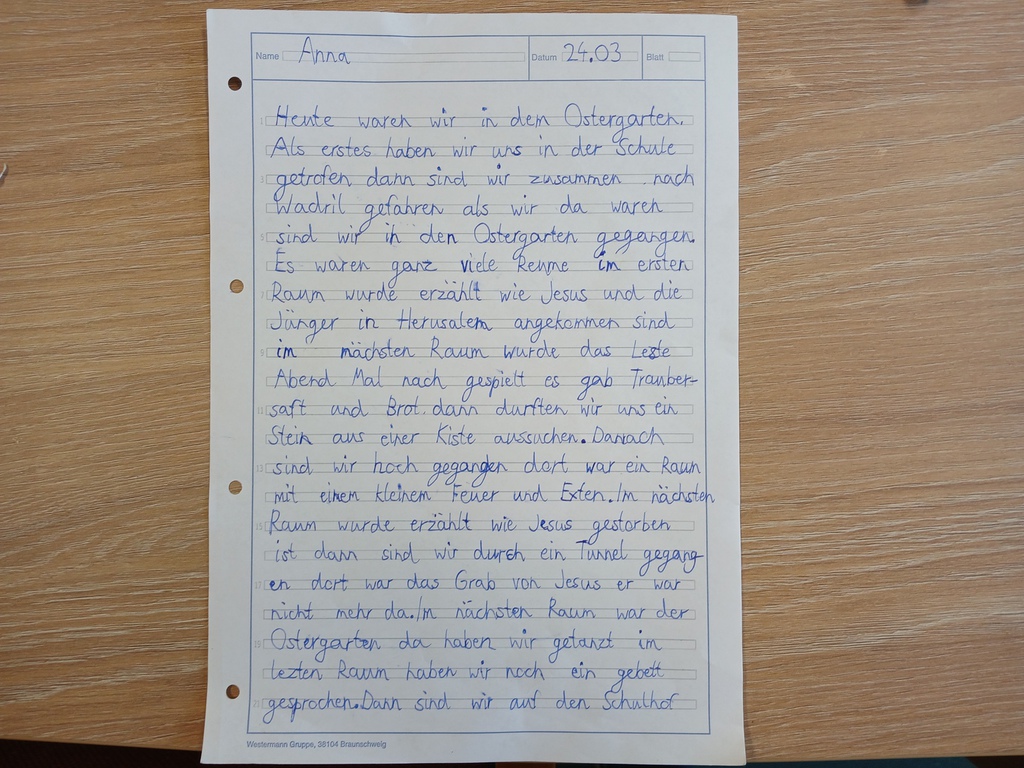 Name Anna Datum 24.03 Blatt
Heute waren wir in dem Ostergarten.
Als erstes haben wir uns in der Schule
getrofen dann sind wir zusammen nach
Wadril gefahren als wir da waren
sind wir in den Ostergarten gegangen.
Es waren ganz viele Reume im ersten
Raum wurde erzählt wie Jesus und die
Jünger in Herusalem angekommen sind
im nächsten Raum wurde das Leste
Abend Mal nach gespielt es gab Trauber-
saft und Brot. dann durften wir uns ein
Stein aus einer Kiste aussuchen. Danach
sind wir hoch gegangen dort war ein Raum
mit einem kleinem Feuer und Exten. Im nächsten
Raum wurde erzählt wie Jesus gestorben
ist dann sind wir durch ein Tunnel gegang-
en dort war das Grab von Jesus er war
nicht mehr da. Im nächsten Raum war der
Ostergarten da haben wir getanzt im
lezten Raum haben wir noch ein gebett
gesprochen. Dann sind wir auf den Schulhof
Westermann Gruppe, 38104 Braunschweig